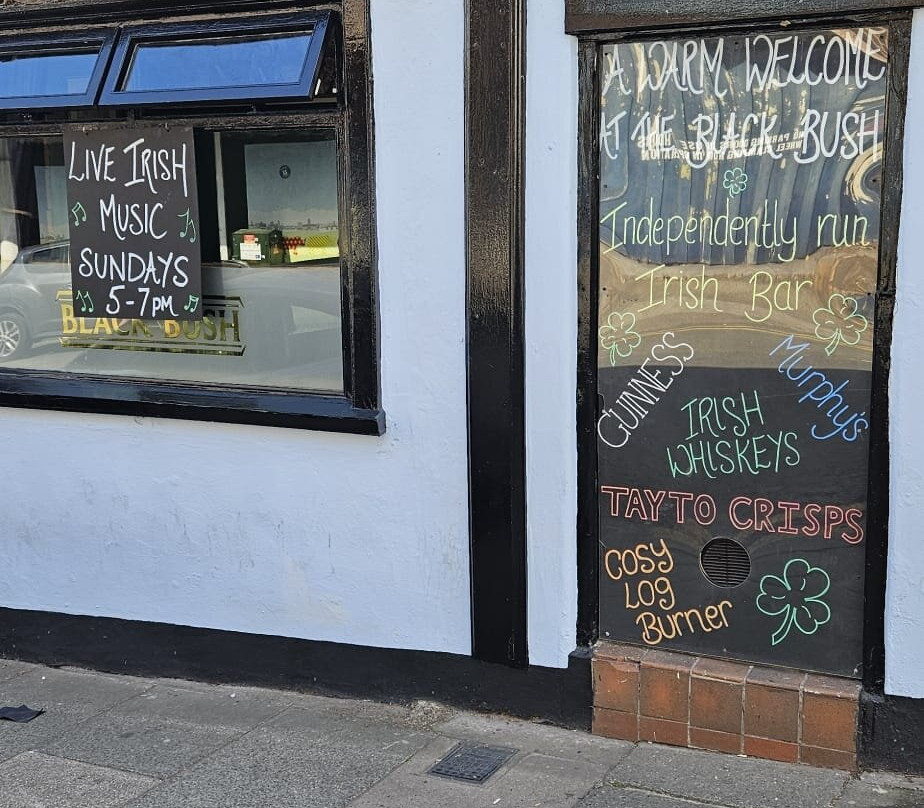 LIVE IRISH
MUSIC
SUNDAYS
5-7PM
BLACK BUSH
A WARM WELCOME
AT THE BLACK BUSH
Independently run
Irish Bar
GUINNESS
Murphy's
IRISH
WHISKEYS
TAYTO CRISPS
COSY
LOG
Burner